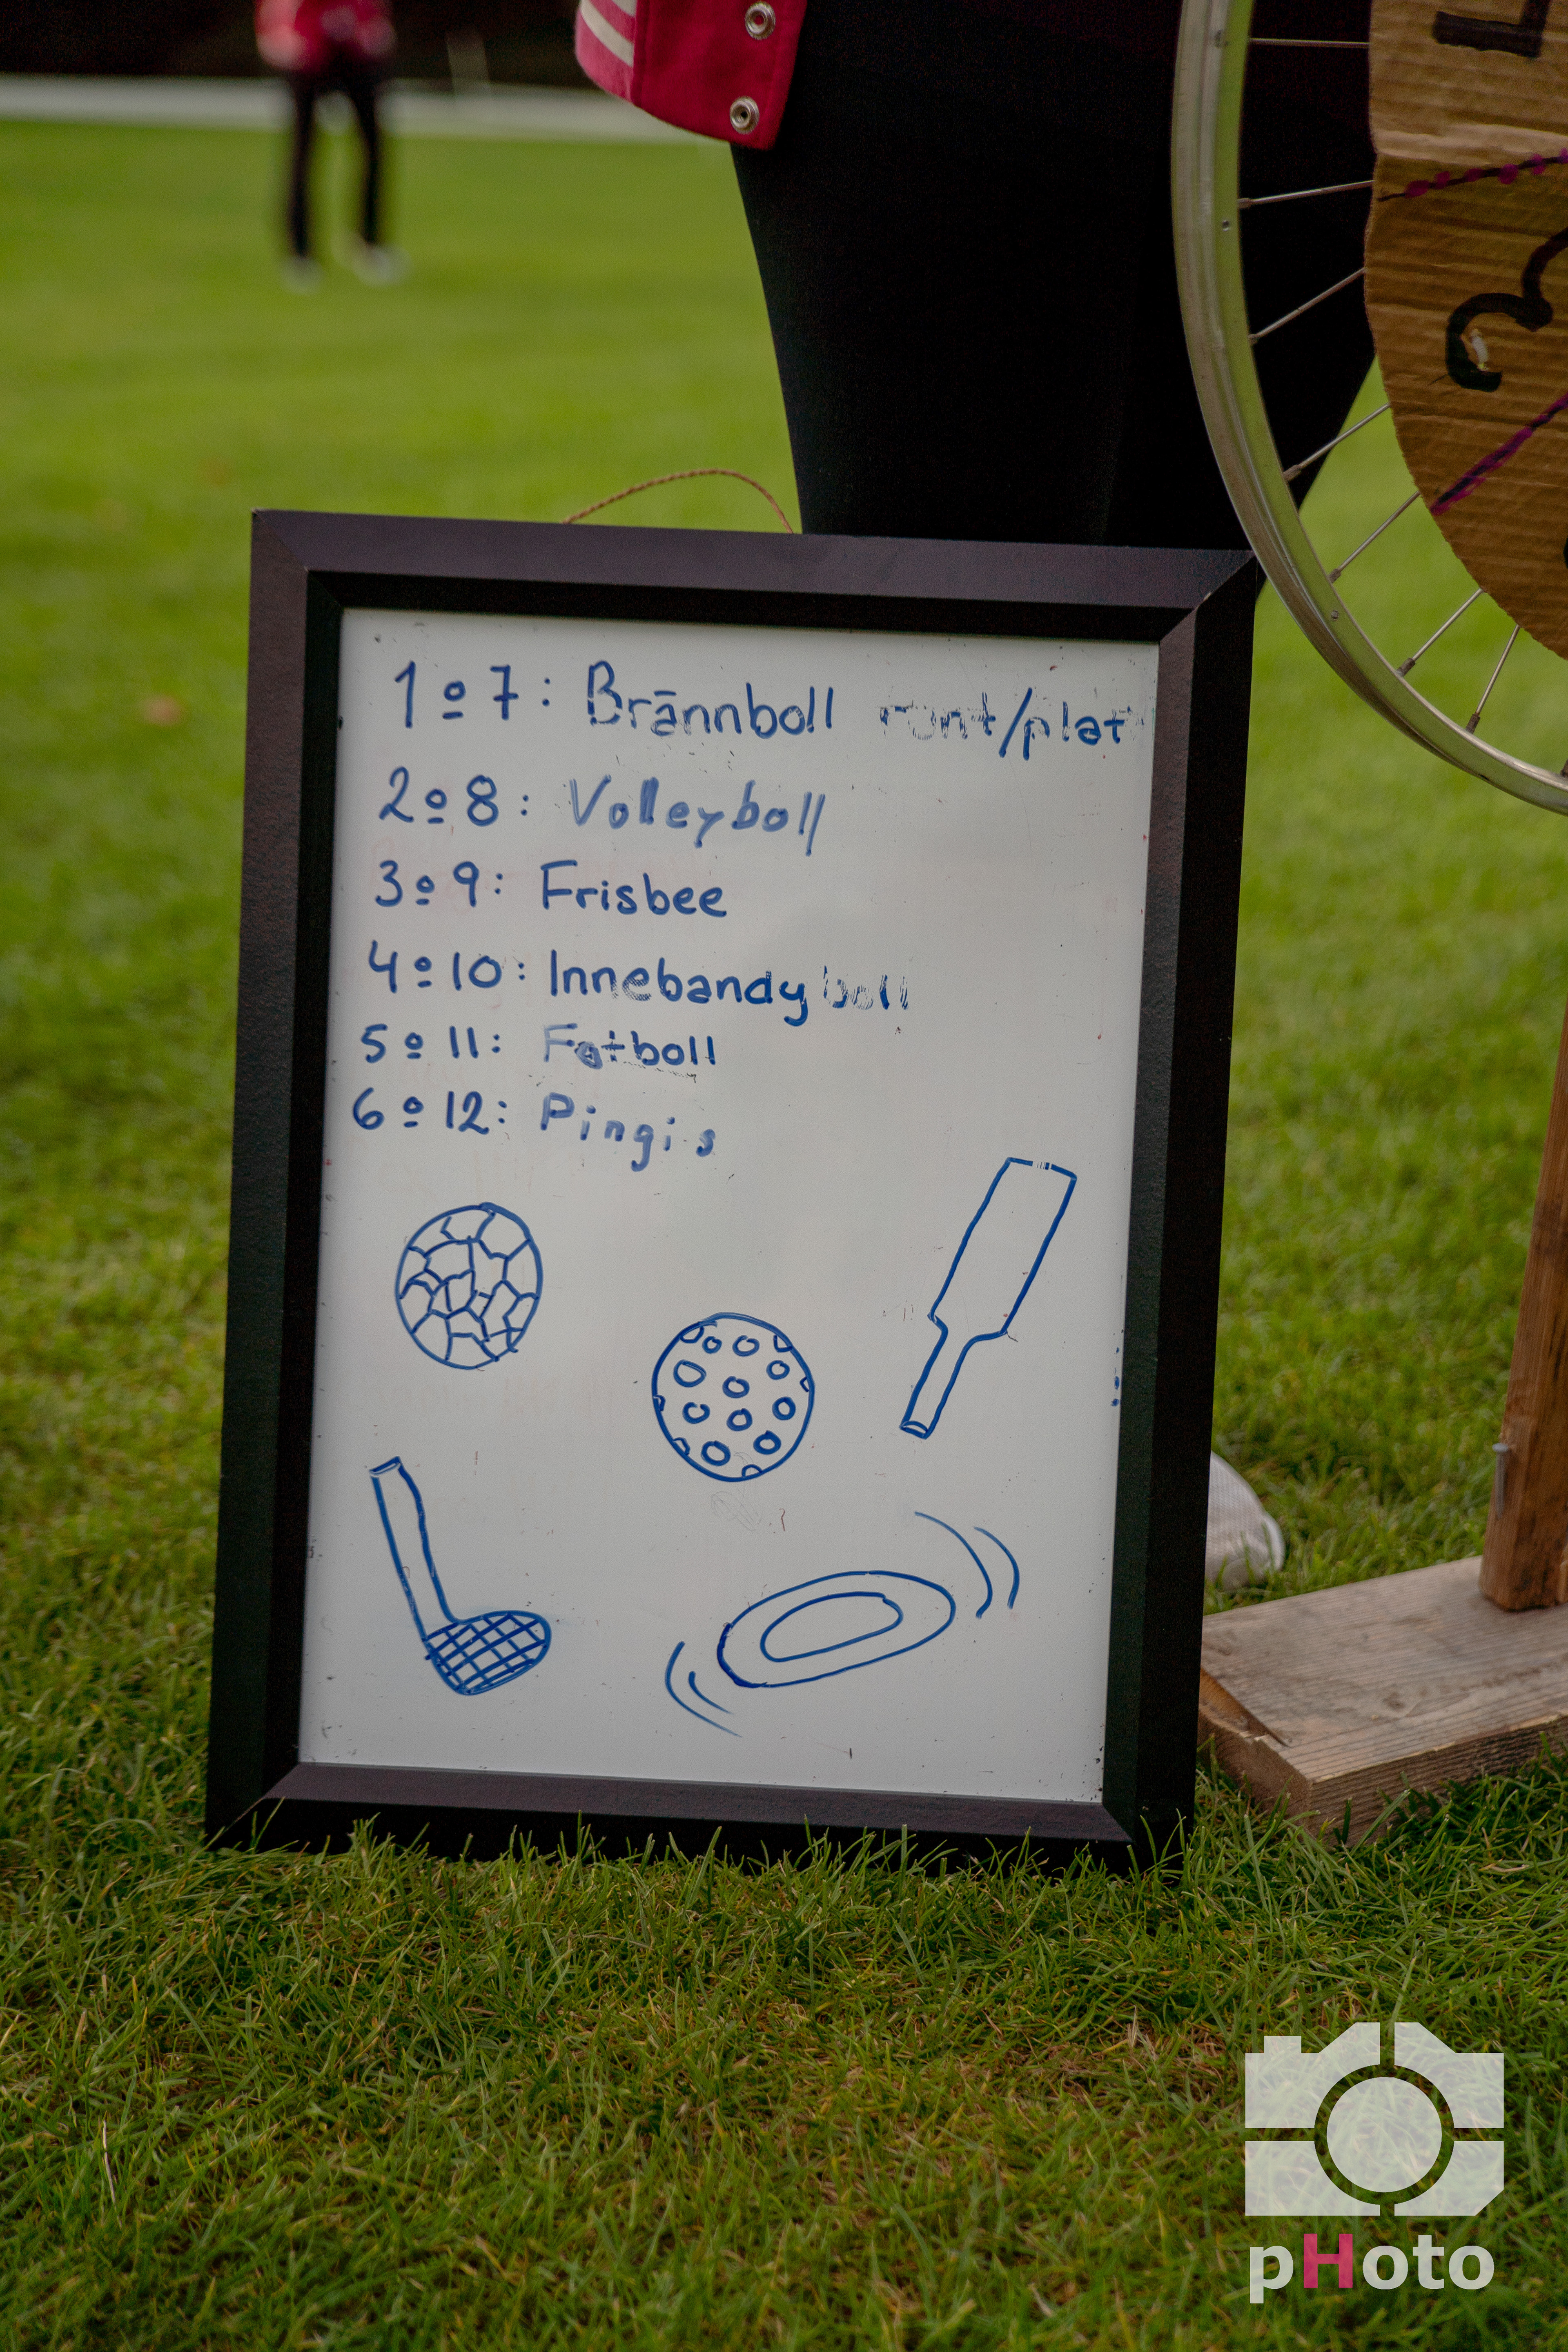 1 o 7: Brännboll runt/platt
2 o 8: Volleyboll
3 o 9: Frisbee
4 o 10: Innebandyboll
5 o 11: Fotboll
6 o 12: Pingis
3
pHoto